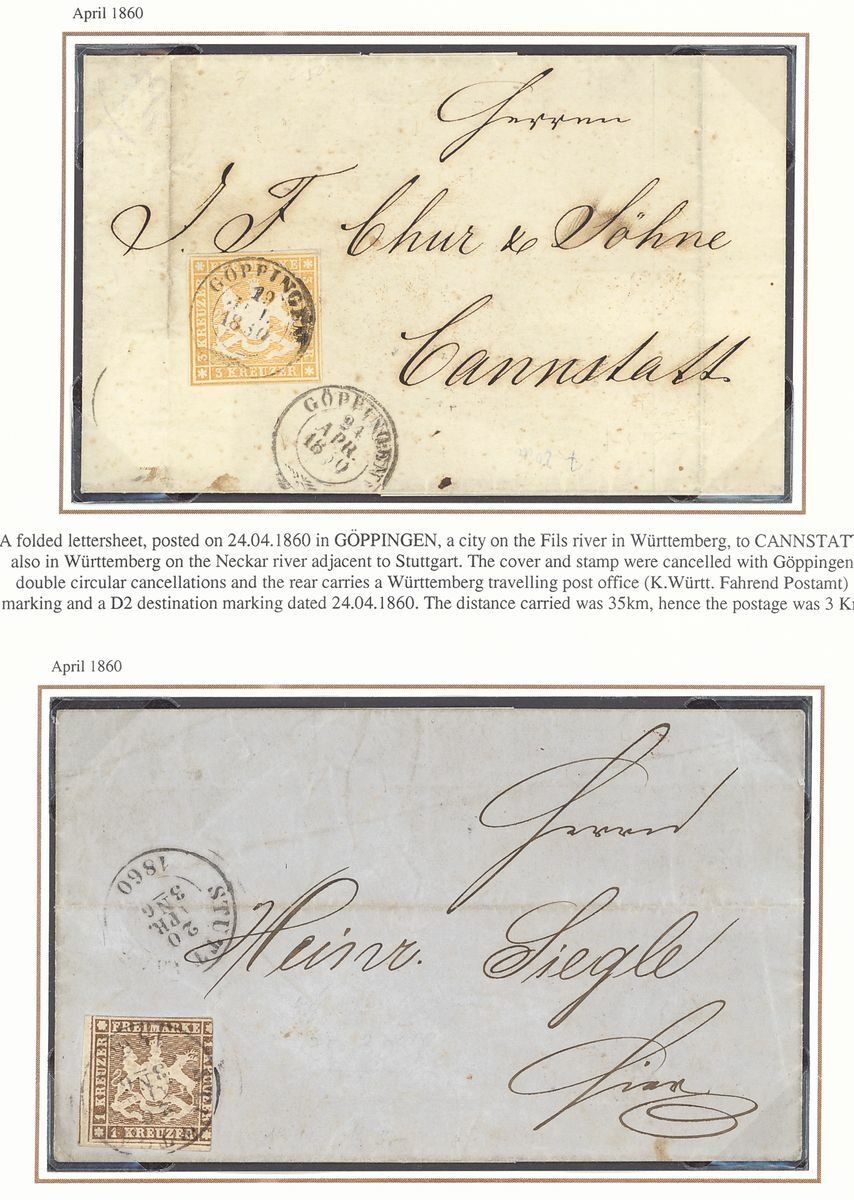 April 1860
Herren
J. F. Chur & Söhne
FREIMARKE
3 KREUZER
3 KREUZER
GÖPPINGEN
Cannstatt
GÖPPINGEN
24
APR.
1860
A folded lettersheet, posted on 24.04.1860 in GÖPPINGEN, a city on the Fils river in Württemberg, to CANNSTAT
also in Württemberg on the Neckar river adjacent to Stuttgart. The cover and stamp were cancelled with Göppingen
double circular cancellations and the rear carries a Württemberg travelling post office (K.Württ. Fahrend Postamt)
marking and a D2 destination marking dated 24.04.1860. The distance carried was 35km, hence the postage was 3 Kr
April 1860
Herrn
1860
STUTT
20
APR.
3 N 6
Heinr. Siegle
FREIMARKE
1 KREUZER
1 KREUZER
1 KREUZER
hier